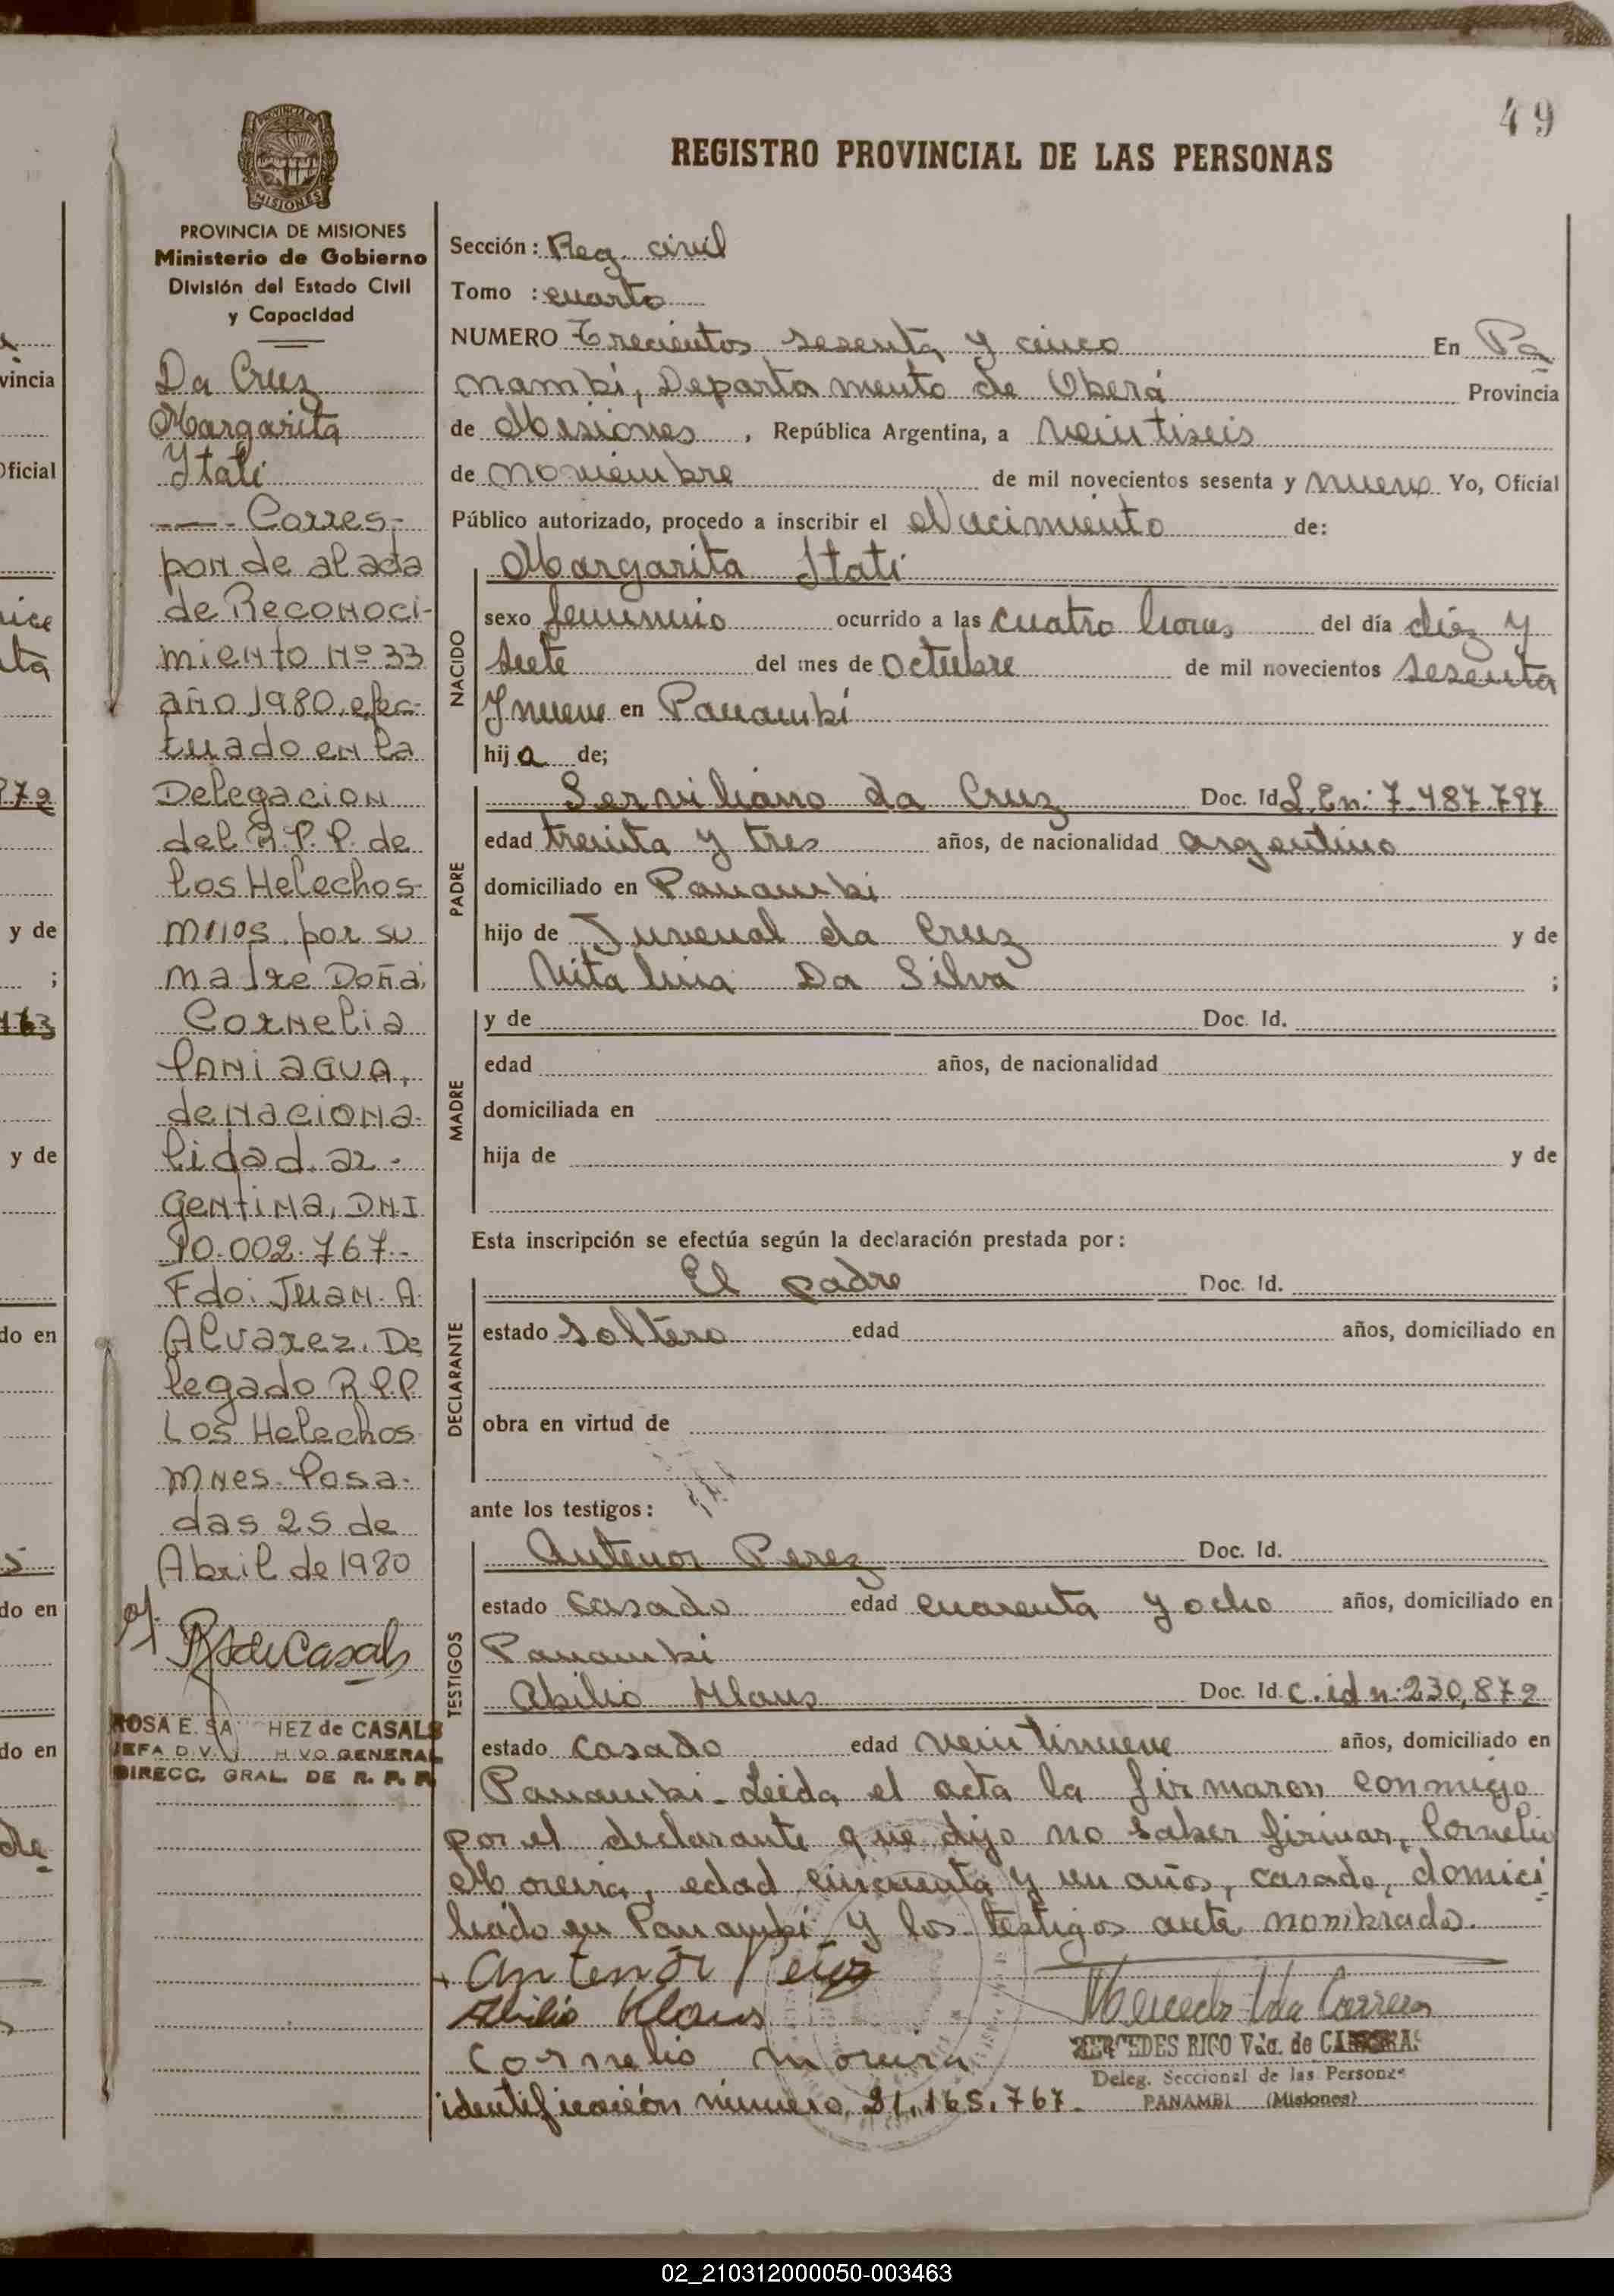 49
REGISTRO PROVINCIAL DE LAS PERSONAS
PROVINCIA DE MISIONES
MISIONES
PROVINCIA DE MISIONES
Ministerio de Gobierno
División del Estado Civil
y Capacidad
Da Cruz
Margarita
Itatí
Corres-
ponde al acta
de Reconoci-
miento Nº 33
año 1980 efec-
tuado en la
Delegacion
del R.P.P. de
los Helechos-
por su
madre Doña,
Cornelia
Paniagua,
de naciona-
lidad ar-
gentina, DNI
10.002.767.-
Fdo: Juan A.
Alvarez. De
legado R.P.P.
Los Helechos
Mnes- Posa-
das 25 de
Abril de 1980
ROSA E. SA HEZ de CASALS
JEFA DIV. H VO GENERAL
DIRECC. GRAL. DE R. P. P.
Sección: Reg. civil
Tomo : cuarto
NUMERO Trecientos sesenta y cinco En Pa
nambi, Departamento de Oberá Provincia
de Misiones, República Argentina, a veintiseis
de noviembre de mil novecientos sesenta y nueve Yo, Oficial
Público autorizado, procedo a inscribir el Nacimiento de:
Margarita Itatí
NACIDO
sexo femenino ocurrido a las cuatro horas del día diez y
siete del mes de octubre de mil novecientos sesenta
y nueve en Panambí
hija de;
PADRE
Serviliano da Cruz Doc. Id L. En: 7.487.797
edad treinta y tres años, de nacionalidad argentino
domiciliado en Panambi
hijo de Juvenal da Cruz y de
Vitalina Da Silva ;
MADRE
y de Doc. Id.
edad años, de nacionalidad
domiciliada en
hija de y de
Esta inscripción se efectúa según la declaración prestada por:
DECLARANTE
El padre Doc. Id.
estado soltero edad años, domiciliado en
obra en virtud de
ante los testigos:
TESTIGOS
Antenor Perez Doc. Id.
estado casado edad cuarenta y ocho años, domiciliado en
Panambi
Abilio Klaus Doc. Id. C. id n: 230,879
estado casado edad veintinueve años, domiciliado en
Panambi. Leida el acta la firmaron conmigo
por el declarante que dijo no saber firmar, Cornelio
Moreira, edad cincuenta y un años, casado, domici
liado en Panambí y los testigos ante nombrado.
Antenor Perez
Abilio Klaus
Cornelio Moreira
identificación número 21.165.767.
MERCEDES RICO Vda. de CARRERAS
Deleg. Seccional de las Personas
PANAMBI (Misiones)
vincia
Oficial
y de
;
y de
do en
do en
do en
02_210312000050-003463